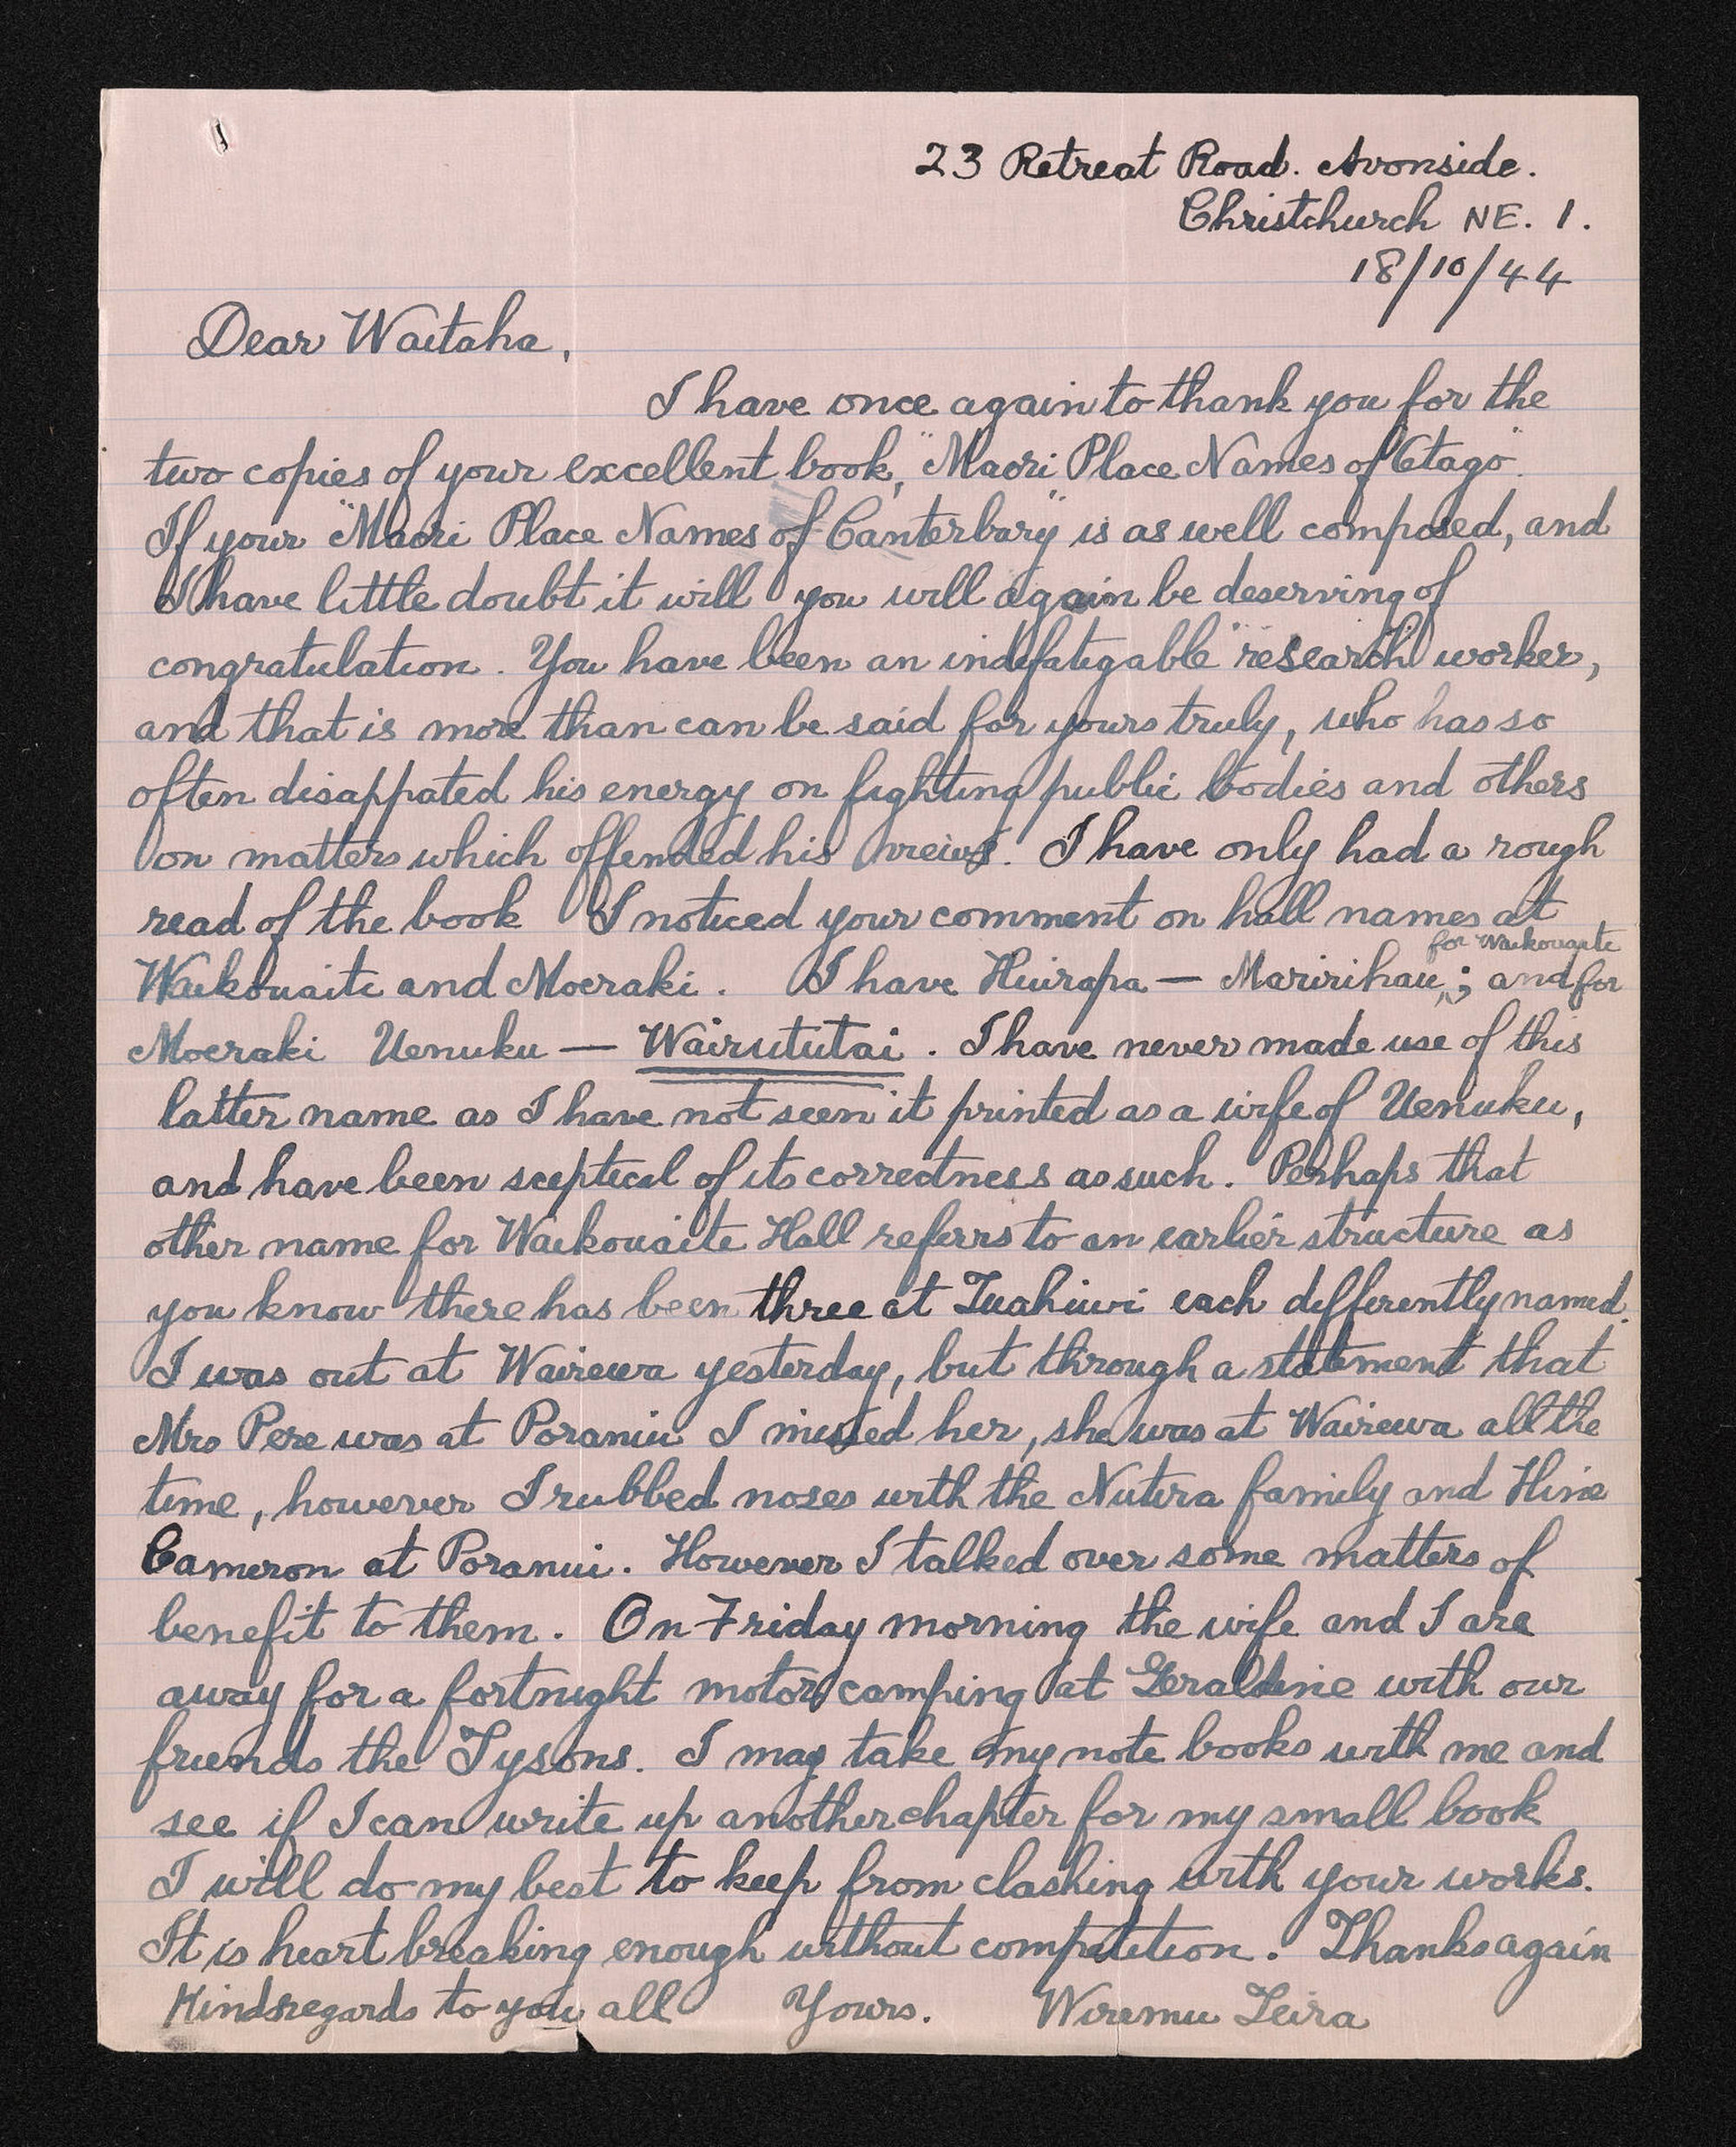 23 Retreat Road. Avonside.
Christchurch NE. 1.
18/10/44
Dear Waitaha,
I have once again to thank you for the
two copies of your excellent book, "Maori Place Names of Otago".
If your "Maori Place Names of Canterbury" is as well composed, and
I have little doubt it will you will again be deserving of
congratulation. You have been an indefatigable "research" worker,
and that is more than can be said for yours truly, who has so
often disappated his energy on fighting public bodies and others
on matters which offended his views. I have only had a rough
read of the book I noticed your comment on hall names at
for Waikouaite
Waikouaite and Moeraki. I have Huirapa — Maririhau; and for
Moeraki Uenuku — Wairututai. I have never made use of this
latter name as I have not seen it printed as a wife of Uenuku,
and have been sceptical of its correctness as such. Perhaps that
other name for Waikouaite Hall referrs to an earlier structure as
you know there has been three at Tuahiwi each differently named.
I was out at Wairewa yesterday, but through a statement that
Mrs Pere was at Poranui I missed her, she was at Wairewa all the
time, however I rubbed noses with the Nutira family and Hine
Cameron at Poranui. However I talked over some matters of
benefit to them. On Friday morning the wife and I are
away for a fortnight motor camping at Geraldine with our
friends the Tysons. I may take my note books with me and
see if I can write up another chapter for my small book
I will do my best to keep from clashing with your works.
It is heart breaking enough without competition. Thanks again
Kinds regards to you all Yours. Wiremu Teira